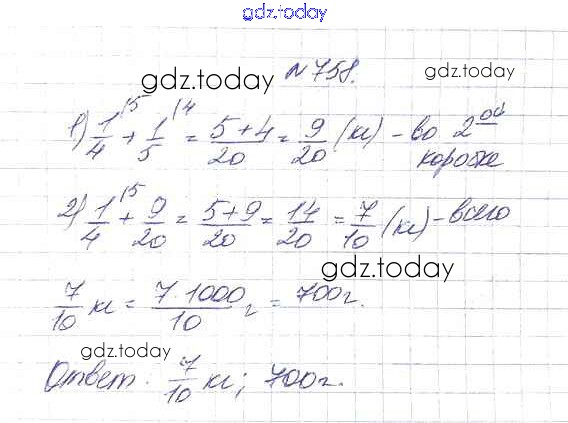 gdz.today
gdz.today №758. gdz.today
1) 1/4 (5 + 1/5 (4 = 5+4/20 = 9/20 (кг) - во 2ой
коробке
2) 1/4 (5 + 9/20 = 5+9/20 = 14/20 = 7/10 (кг) - всего
gdz.today
7/10 кг = 7·1000/10 г = 700г.
gdz.today
Ответ: 7/10 кг; 700г.